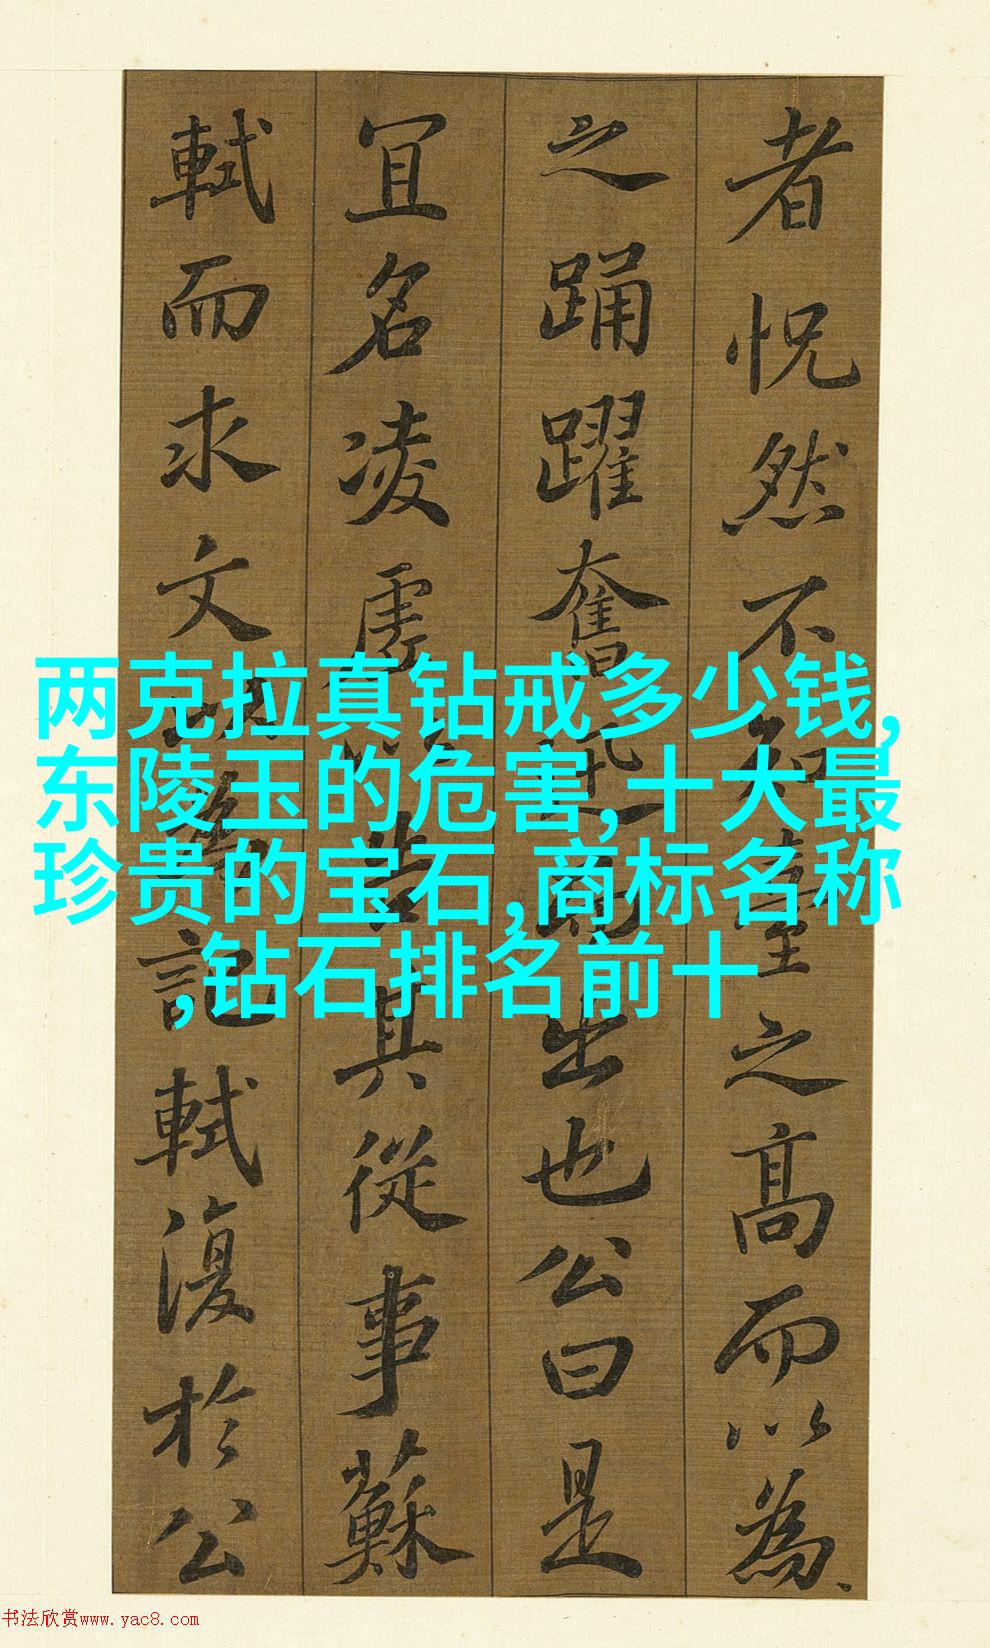 者怳然不知臺之高而以為
之踊躍奮迅而出也公曰是
宜名凌虛以告其從事蘇
軾而求文以為記軾復於公
两克拉真钻戒多少钱,
东陵玉的危害,十大最
珍贵的宝石,商标名称
,钻石排名前十
书法欣赏www.yac8.com